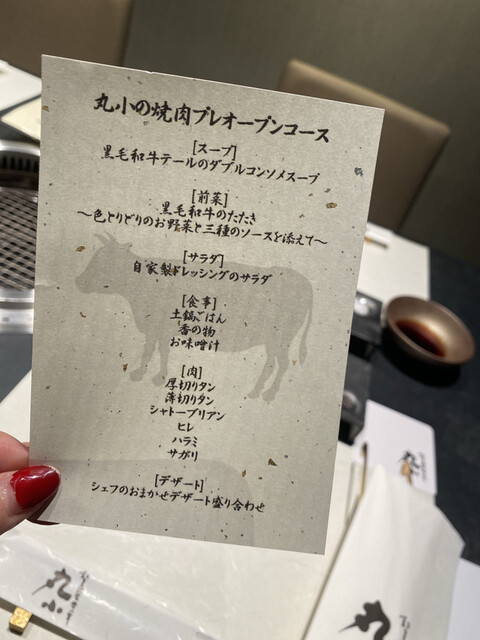 丸小の焼肉プレオープンコース
[スープ]
黒毛和牛テールのダブルコンソメスープ
[前菜]
黒毛和牛のたたき
～色とりどりのお野菜と三種のソースを添えて～
[サラダ]
自家製ドレッシングのサラダ
[食事]
土鍋ごはん
香の物
お味噌汁
[肉]
厚切りタン
薄切りタン
シャトーブリアン
ヒレ
ハラミ
サガリ
[デザート]
シェフのおまかせデザート盛り合わせ
丸小
丸
丸